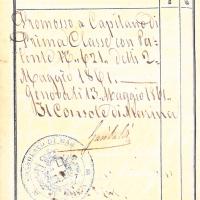 Promosso a Capitano di
Prima Classe con Pa-
tente N.º 621 delli 2
Maggio 1861.—
Genova li 13 Maggio 1861.
Il Console di Marina
CONSOLATO DI MAR